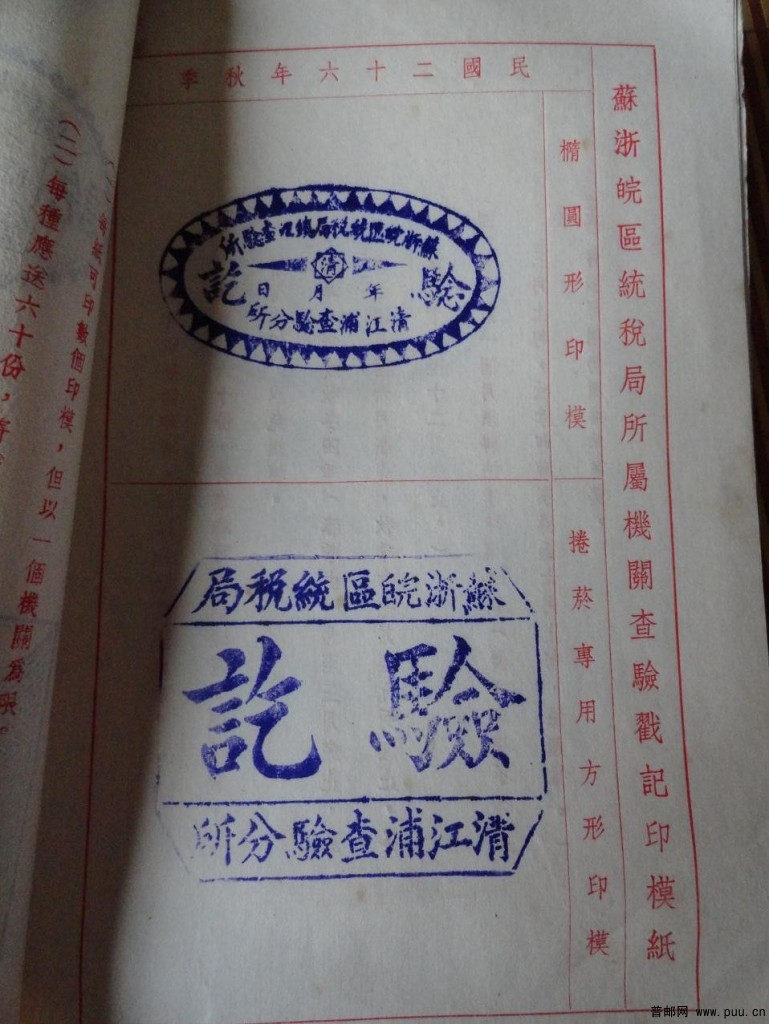 蘇浙皖區統稅局所屬機關查驗戳記印模紙
民國二十六年秋季
橢圓形印模
蘇浙皖區統稅局鎮江查驗所
清
驗訖
年月日
清江浦查驗分所
捲菸專用方形印模
蘇浙皖區統稅局
驗訖
清江浦查驗分所
紙可印數個印模，但以一個機關為限。
(二)每種應送六十份，
普邮网 www.puu.cn